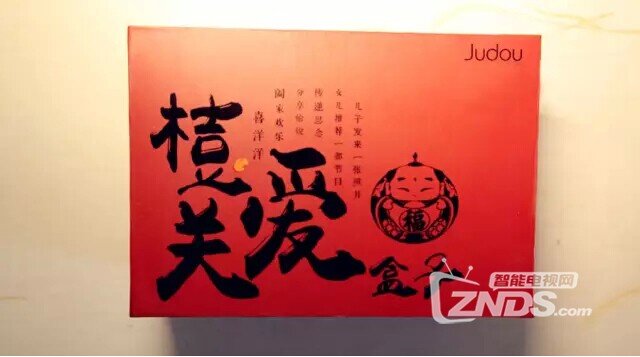 Judou
桔之关爱
盒子
儿子发来一张照片
女儿推荐一部节目
传递思念
分享愉悦
阖家欢乐
喜洋洋
福
智能电视网
ZNDS.com